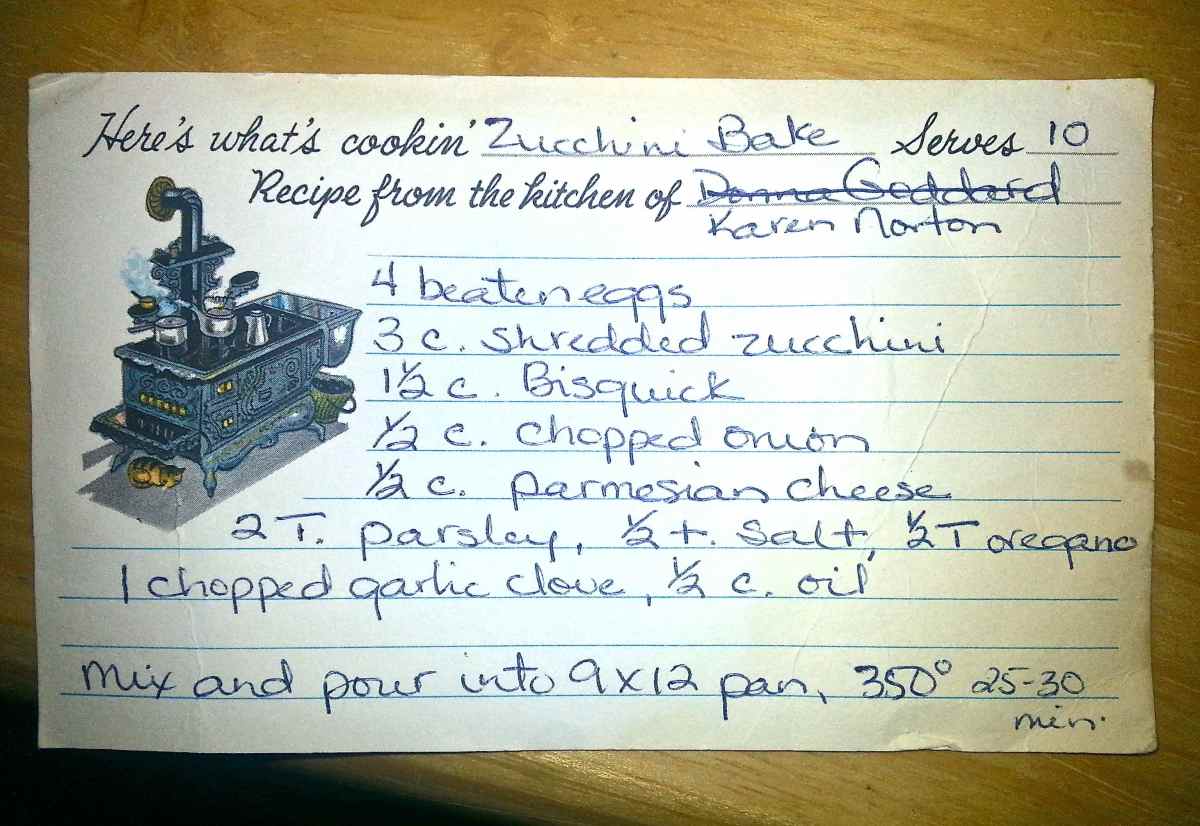 Here's what's cookin' Zucchini Bake Serves 10
Recipe from the kitchen of Donna Goddard
Karen Norton
4 beaten eggs
3 c. shredded zucchini
1½ c. Bisquick
½ c. chopped onion
½ c. parmesian cheese
2 T. parsley, ½ t. salt, ½ T oregano
1 chopped garlic clove, ½ c. oil
Mix and pour into 9x12 pan, 350° 25-30
min.